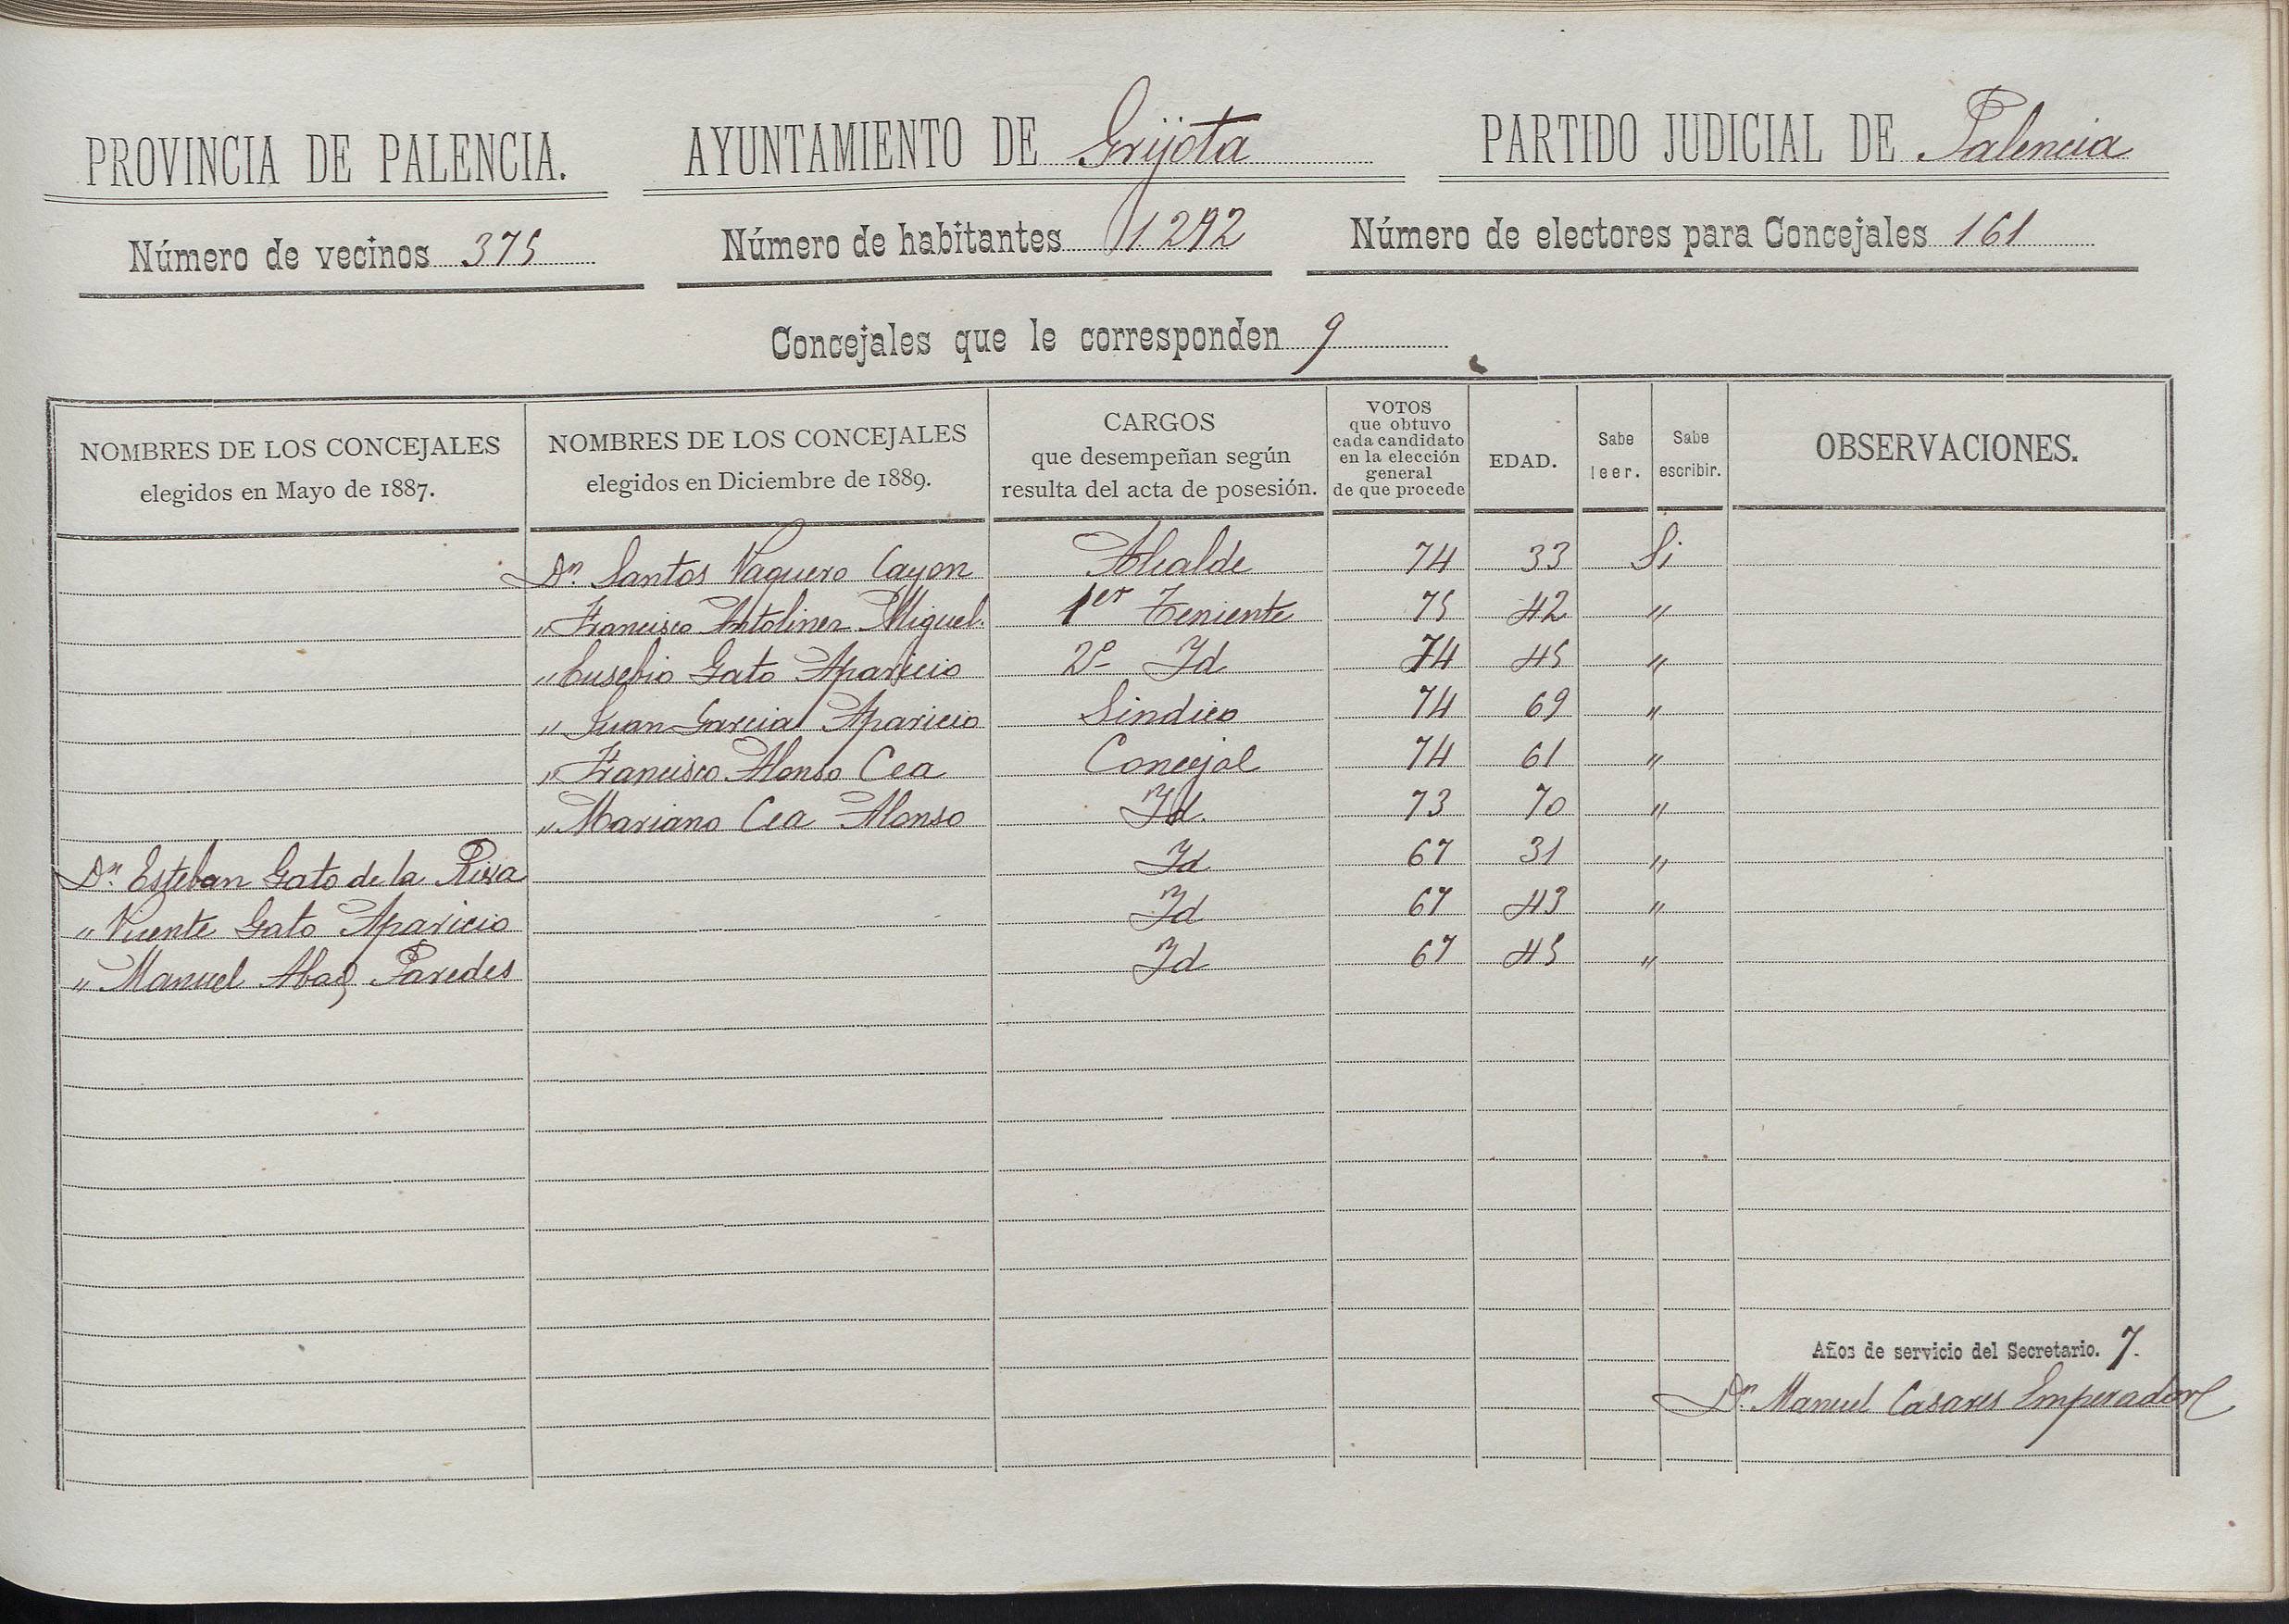 PROVINCIA DE PALENCIA. AYUNTAMIENTO DE Grijota PARTIDO JUDICIAL DE Palencia
Número de vecinos 375 Número de habitantes 1292 Número de electores para Concejales 161
Concejales que le corresponden 9
NOMBRES DE LOS CONCEJALES
elegidos en Mayo de 1887.
NOMBRES DE LOS CONCEJALES
elegidos en Diciembre de 1889.
CARGOS
que desempeñan según
resulta del acta de posesión.
VOTOS
que obtuvo
cada candidato
en la elección
general
de que procede
EDAD.
Sabe
leer.
Sabe
escribir.
OBSERVACIONES.
Dn. Santos Vaquero Cayon Alcalde 74 33 Si
" Francisco Antolinez Miguel. 1er Teniente 75 42 "
" Eusebio Gato Aparicio 2º Id 74 45 "
" Juan Garcia Aparicio Sindico 74 69 "
" Francisco Alonso Cea Concejal 74 61 "
" Mariano Cea Alonso Id. 73 70 "
Dn. Esteban Gato de la Riva Id 67 31 "
" Vicente Gato Aparicio Id 67 43 "
" Manuel Abad Paredes Id 67 45 "
Años de servicio del Secretario. 7.
Dn. Manuel Casares Emperador